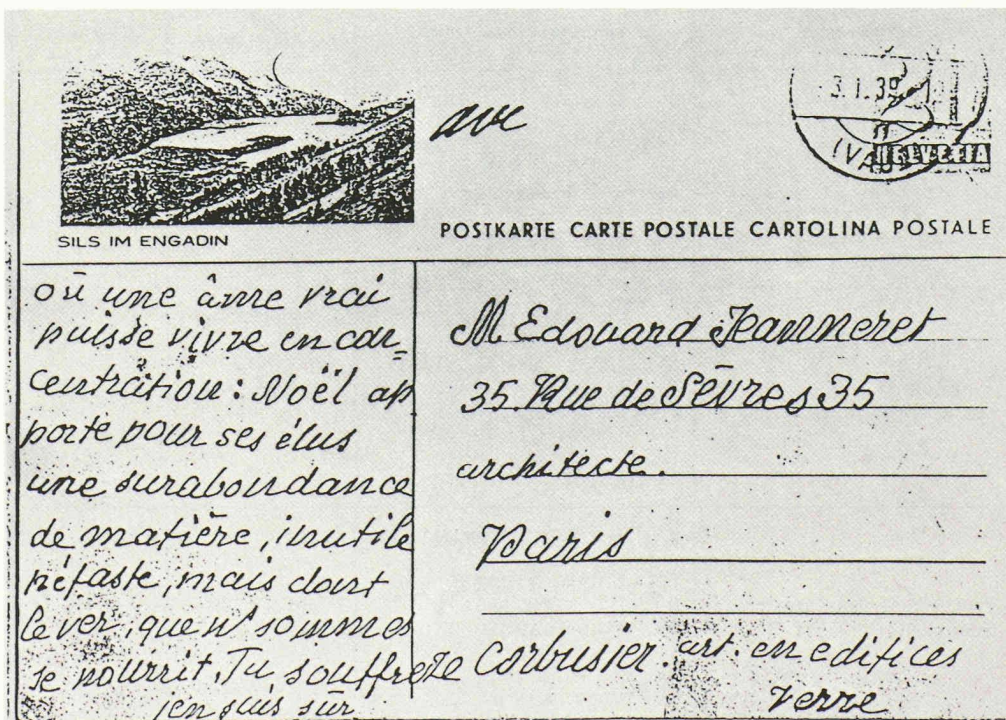 ave
3.1.39
(VA
HELVETIA
SILS IM ENGADIN
POSTKARTE CARTE POSTALE CARTOLINA POSTALE
où une âme vrai
puisse vivre en con-
centration: Noël ap
porte pour ses élus
une surabondance
de matière, inutile
néfaste, mais dont
le ver, que ns sommes
se nourrit. Tu souffre
j'en suis sûr
M. Edouard Jeanneret
35. Rue de Sèvres 35
architecte.
Paris
Le Corbusier. art. en edifices
verre